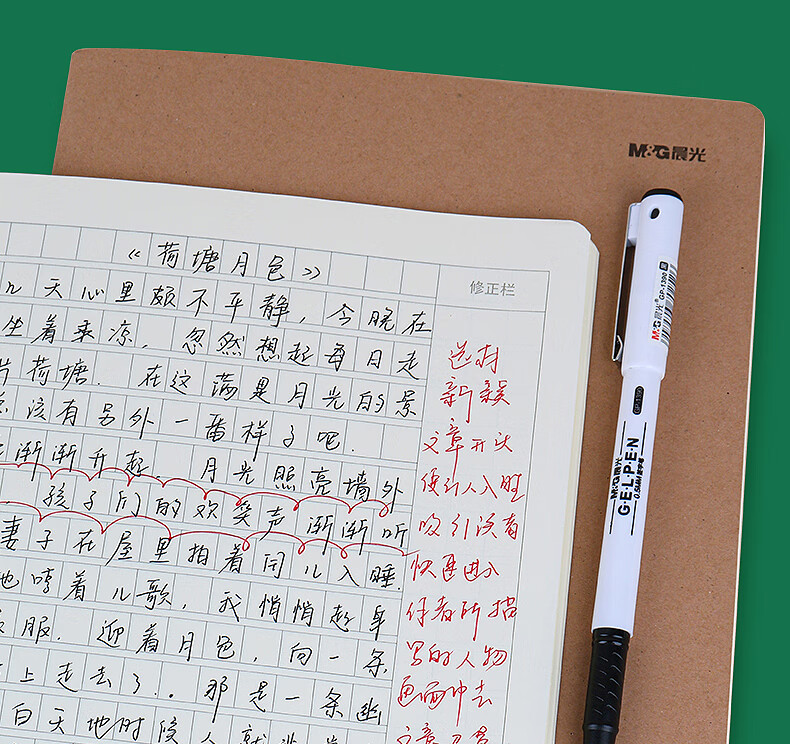 M&G晨光
《荷塘月色》
修正栏
几天心里颇不平静，今晚在
坐着乘凉，忽然想起每日走
荷塘．在这满是月光的景
该有另外一番样子吧．
渐渐升起 月光照亮墙外
孩子们的欢笑声渐渐听
妻子在屋里拍着闰儿入睡．
地哼着儿歌，我悄悄起身
衣服．迎着月色，向一条
上走去了．．那是一条幽
白天地时候人就
选材
新颖
文章开头
便引人入胜
吸引读者
快速进入
作者所描
写的人物
画面中去
M&G晨光 GP-1390
GP-1390
M&G晨光
GELPEN
0.5MM